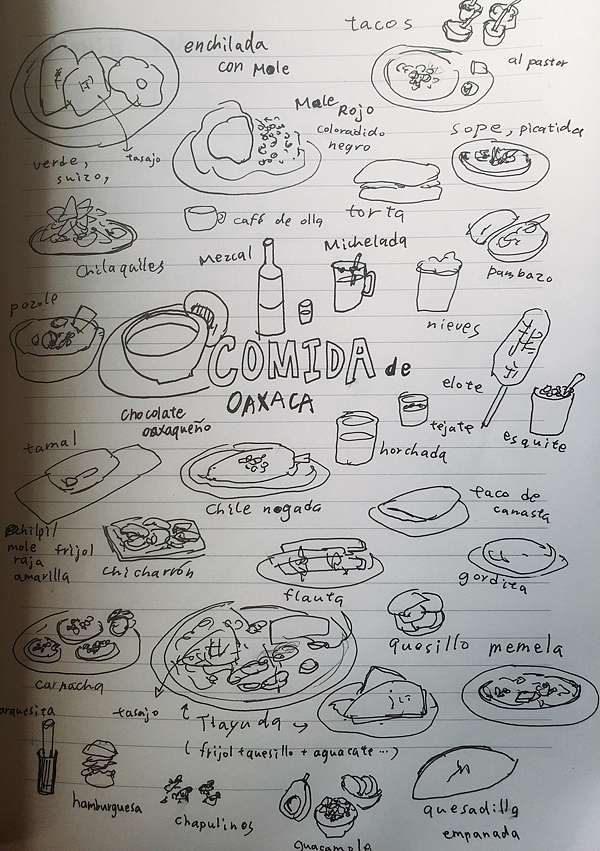 tacos
enchilada
con Mole
al pastor
Mole Rojo
coloradido
negro
sope, picatida
verde,
suizo,
tasajo
torta
café de olla
Chilaquiles
Mezcal
Michelada
pambazo
pozole
nieves
COMIDA de
OAXACA
elote
Chocolate
oaxaqueño
tejate
esquite
horchada
tamal
Chile nogada
taco de
canasta
chilpil
mole frijol
raja
amarilla
chicharrón
flauta
gordita
quesillo
memela
carnacha
arquesita
tasajo
Tlayuda
(frijol + quesillo + aguacate ...)
hamburguesa
chapulinos
Guacamole
quesadilla
empanada